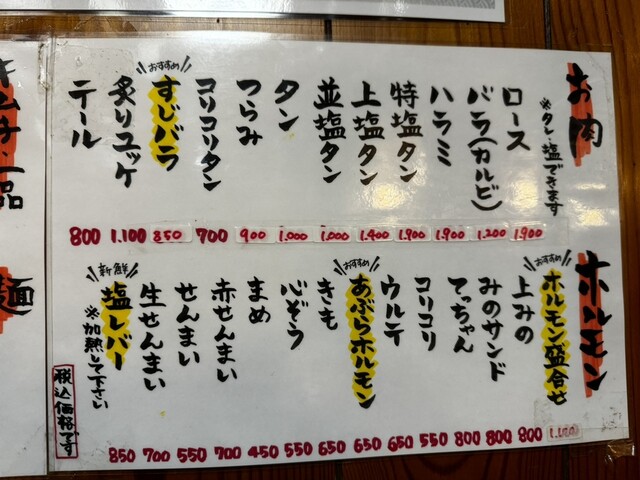 お肉
※タレ・塩できます
ロース 1.900
バラ(カルビ) 1.200
ハラミ 1.900
特塩タン 1.900
上塩タン 1.400
並塩タン 1.000
タン 1.000
つらみ 900
コリコリタン 700
おすすめ
すじバラ 850
炙りユッケ 1.100
テール 800
ホルモン
おすすめ
ホルモン盛合せ
上みの 800
みのサンド 800
てっちゃん 800
コリコリ 550
ウルテ 650
おすすめ
あぶらホルモン 650
きも 650
心ぞう 550
まめ 450
赤せんまい 700
せんまい 550
生せんまい 700
新鮮
塩レバー 850
※加熱して下さい
税込価格です
キムチ・一品
麺